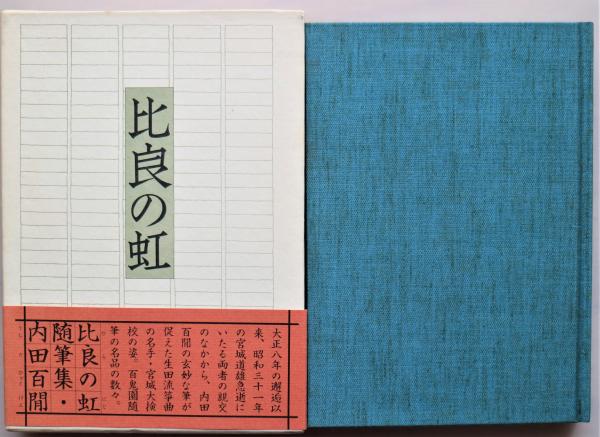 比良の虹
大正八年の邂逅以
来、昭和三十一年
の宮城道雄急逝に
いたる両者の親交
のなかから、内田
百閒の玄妙な筆が
促えた生田流箏曲
の名手・宮城大検
校の姿。百鬼園随
筆の名品の数々。
比良の虹
随筆集・
内田百閒